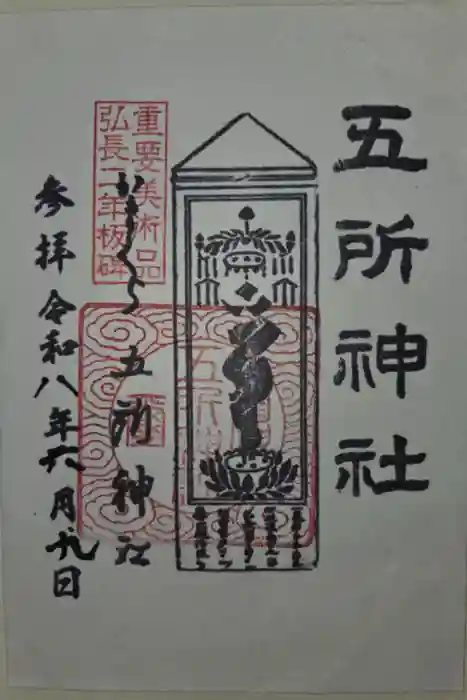 五所神社
重要美術品
弘長二年板碑
かまくら 五所神社
参拝 令和八年六月九日